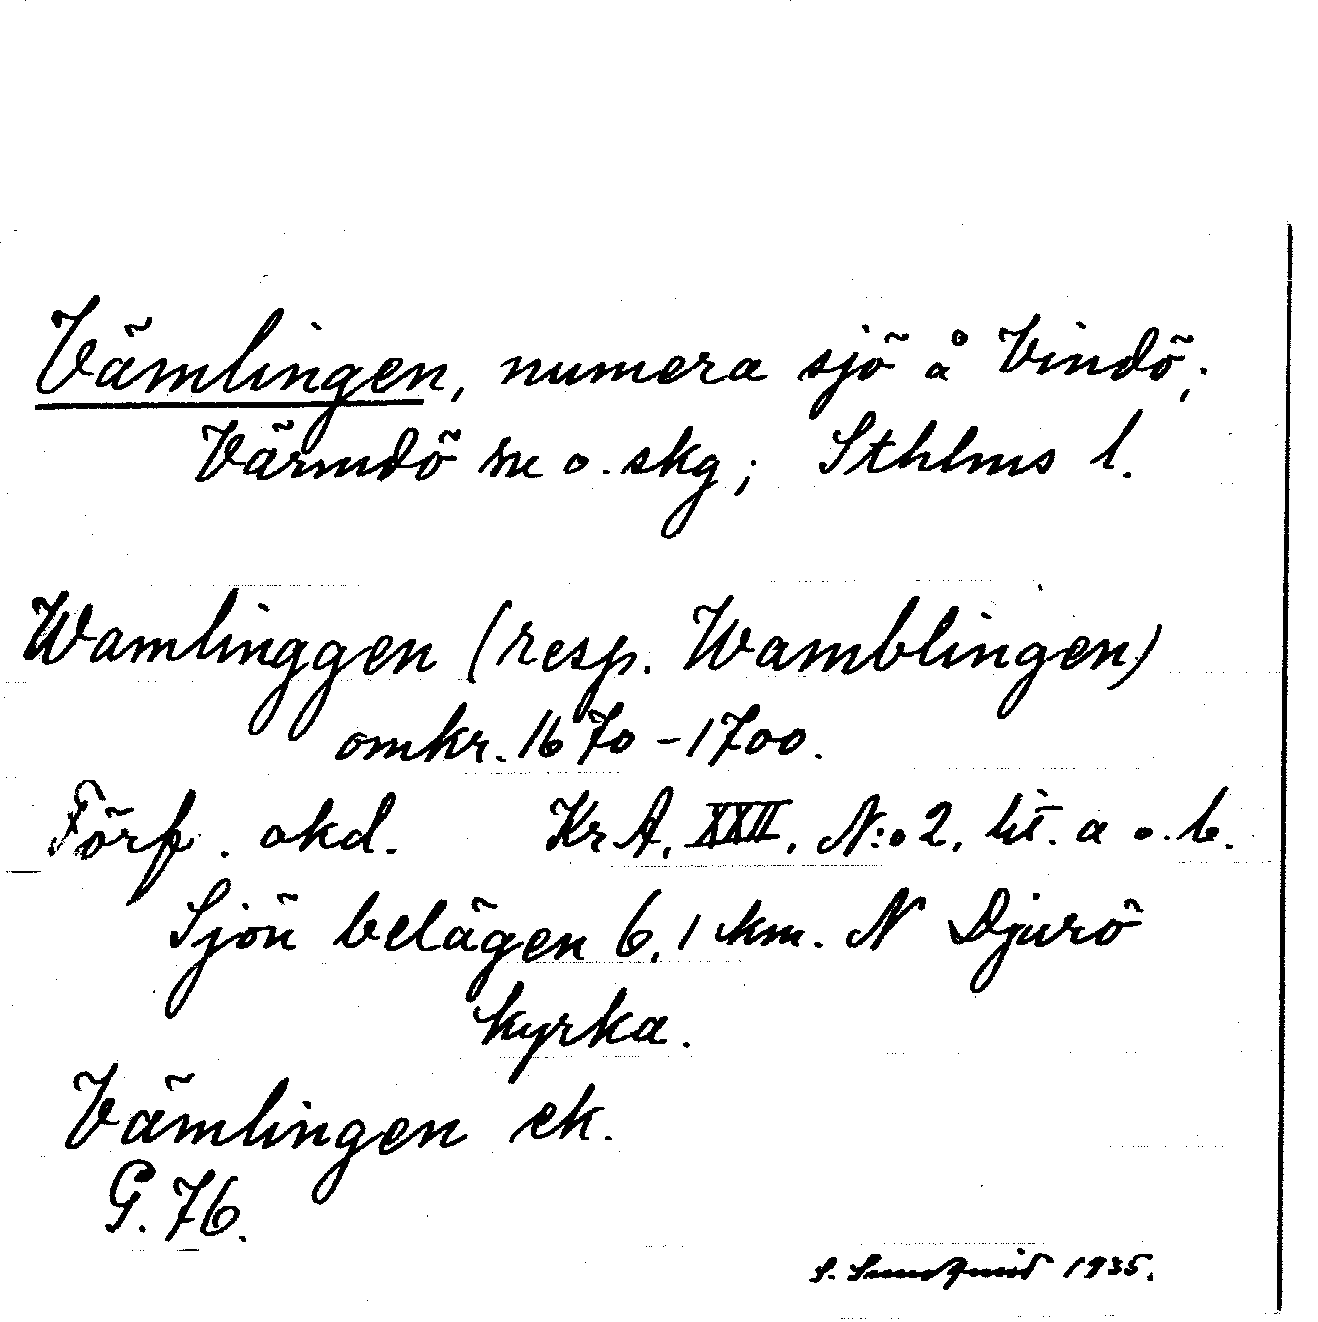 Vämlingen, numera sjö å Vindö;
Värmdö sn o. skg; Sthlms l.
Wamlinggen (resp. Wamblingen)
omkr. 1670-1700.
Förf. okd. KrA. XXII. N:o 2. lit. a o. b.
Sjön belägen 6,1 km. N Djurö
kyrka.
Vämlingen ek.
G. 76.
S. Sundqvist 1935.